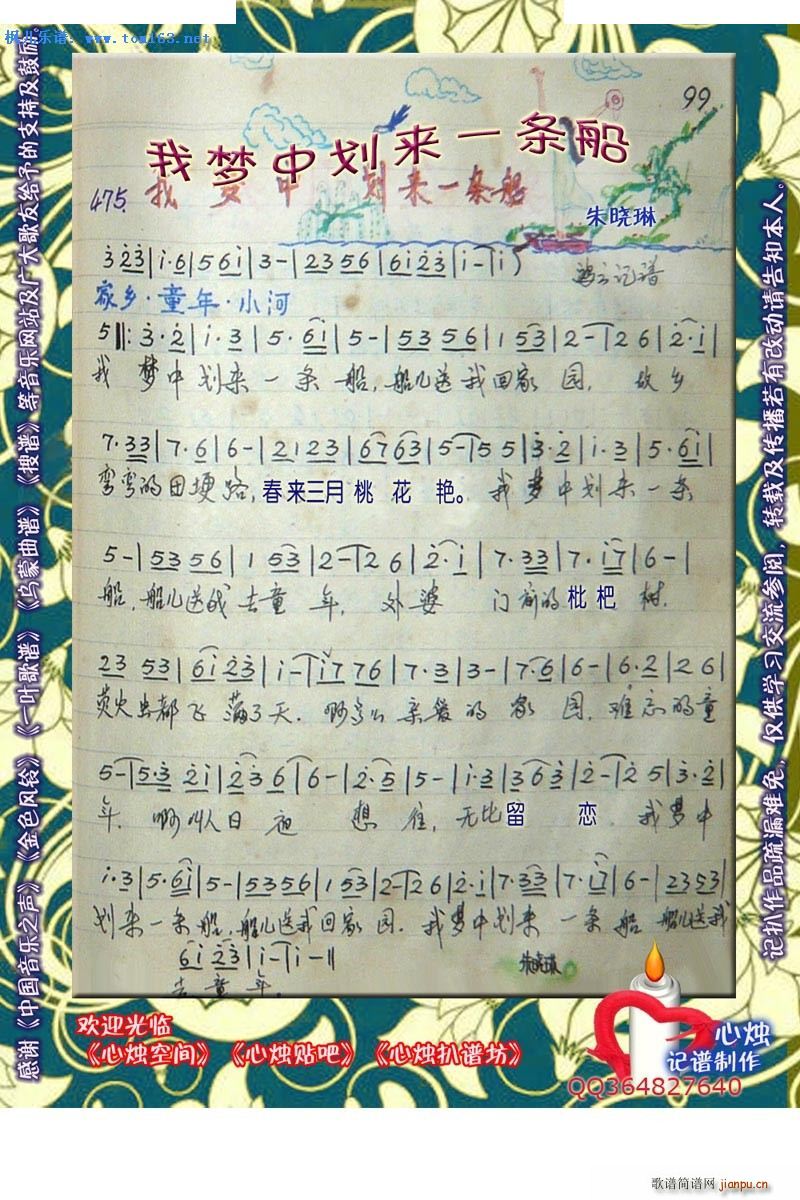 枫儿乐谱: www.tom163.net
99
我梦中划来一条船
475. 我梦中划来一条船
朱晓琳
3 2 3 | i· 6 | 5 6 i | 3 – | 2 3 5 6 | 6 i 2 3 | i – | i )
记谱
家乡·童年·小河
5 ‖: 3· 2 | i· 3 | 5· 6 i | 5 – | 5 3 5 6 | 1 5 3 | 2 – | 2 2 6 | 2· i |
我 梦中 划来 一条 船, 船儿送我回家 园, 故乡
7· 3 3 | 7· 6 | 6 – | 2 1 2 3 | 6 7 6 3 | 5 – | 5 5 5 | 3· 2 | i· 3 | 5· 6 i |
弯弯的田埂路, 春来三月 桃 花 艳。 我梦中划来 一条
5 – | 5 3 5 6 | 1 5 3 | 2 – | 2 6 | 2· i | 7· 3 3 | 7· i 7 | 6 – |
船, 船儿送我 去童 年, 外婆 门前的 枇杷 树.
2 3 5 3 | 6 i 2 3 | i – | i 7 7 6 | 7· 3 | 3 – | 7· 6 | 6 – | 6· 2 | 2 6 |
萤火虫都 飞 满了天. 啊 亲爱的 家 园, 难忘的童
5 – | 5· 3 2 i | 2 3 6 | 6 – | 2· 5 | 5 – | i· 3 | 3 6 3 | 2 – | 2 5 | 3· 2 |
年. 啊 叫人日 夜 想 往, 无比 留 恋. 我梦中
i· 3 | 5· 6 i | 5 – | 5 3 5 6 | 1 5 3 | 2 – | 2 2 6 | 2· i | 7· 3 3 | 7· i 7 | 6 – | 2 3 5 3 |
划来 一条 船, 船儿送我回家 园. 我梦中划来 一条 船 船儿送我
6 i 2 3 | i – | i – ‖
去 童 年.
朱晓琳
感谢《中国音乐之声》《金色风铃》《一叶歌谱》《乌蒙曲谱》《搜谱》等音乐网站及广大歌友给予的支持及鼓励
记扒作品疏漏难免, 仅供学习交流参阅, 转载及传播若有改动请告知本人。
欢迎光临
《心烛空间》《心烛贴吧》《心烛扒谱坊》
心烛
记谱制作
QQ364827640
歌谱简谱网 jianpu.cn